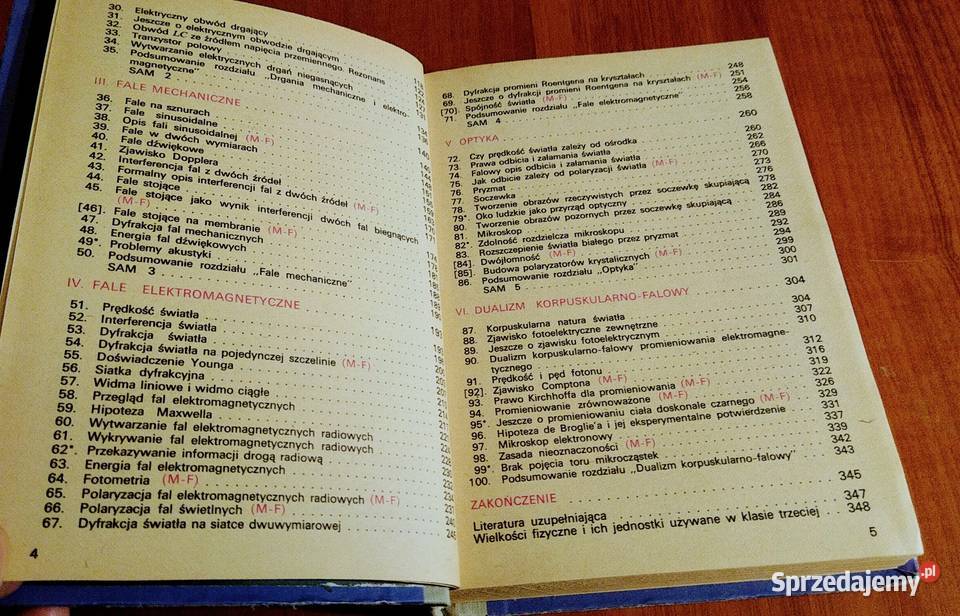 30. Elektryczny obwód drgający
31. Jeszcze o elektrycznym obwodzie drgającym
32. Obwód LC ze źródłem napięcia przemiennego. Rezonans
33. Tranzystor polowy
34. Wytwarzanie elektrycznych drgań niegasnących
35. Podsumowanie rozdziału „Drgania mechaniczne i elektro-
magnetyczne”
SAM 2
III. FALE MECHANICZNE
36. Fale na sznurach
37. Fale sinusoidalne
38. Opis fali sinusoidalnej (M-F)
39. Fale w dwóch wymiarach
40. Fale dźwiękowe
41. Zjawisko Dopplera
42. Interferencja fal z dwóch źródeł
43. Formalny opis interferencji fal z dwóch źródeł (M-F)
44. Fale stojące
45. Fale stojące jako wynik interferencji dwóch fal biegnących
(M-F)
[46]. Fale stojące na membranie (M-F)
47. Dyfrakcja fal mechanicznych
48. Energia fal dźwiękowych
49*. Problemy akustyki
50. Podsumowanie rozdziału „Fale mechaniczne”
SAM 3
IV. FALE ELEKTROMAGNETYCZNE
51. Prędkość światła
52. Interferencja światła
53. Dyfrakcja światła
54. Dyfrakcja światła na pojedynczej szczelinie (M-F)
55. Doświadczenie Younga
56. Siatka dyfrakcyjna
57. Widma liniowe i widmo ciągłe
58. Przegląd fal elektromagnetycznych
59. Hipoteza Maxwella
60. Wytwarzanie fal elektromagnetycznych radiowych
61. Wykrywanie fal elektromagnetycznych radiowych
62*. Przekazywanie informacji drogą radiową
63. Energia fal elektromagnetycznych
64. Fotometria (M-F)
65. Polaryzacja fal elektromagnetycznych radiowych (M-F)
66. Polaryzacja fal świetlnych (M-F)
67. Dyfrakcja światła na siatce dwuwymiarowej
4
68. Dyfrakcja promieni Roentgena na kryształach 248
69. Jeszcze o dyfrakcji promieni Roentgena na kryształach (M-F) 251
[70]. Spójność światła (M-F) 254
71. Podsumowanie rozdziału „Fale elektromagnetyczne” 256
SAM 4 258
V OPTYKA 260
72. Czy prędkość światła zależy od ośrodka 260
73. Prawa odbicia i załamania światła 262
74. Falowy opis odbicia i załamania światła 266
75. Jak odbicie zależy od polaryzacji światła (M-F) 270
76. Pryzmat 273
77. Soczewka 276
78. Tworzenie obrazów rzeczywistych przez soczewkę skupiającą 278
79*. Oko ludzkie jako przyrząd optyczny 282
80. Tworzenie obrazów pozornych przez soczewkę skupiającą 284
81. Mikroskop 286
82*. Zdolność rozdzielcza mikroskopu 289
83. Rozszczepienie światła białego przez pryzmat 292
[84]. Dwójłomność (M-F) 294
[85]. Budowa polaryzatorów krystalicznych (M-F) 299
86. Podsumowanie rozdziału „Optyka” 300
SAM 5 301
VI. DUALIZM KORPUSKULARNO-FALOWY 304
87. Korpuskularna natura światła 304
88. Zjawisko fotoelektryczne zewnętrzne 307
89. Jeszcze o zjawisku fotoelektrycznym 310
90. Dualizm korpuskularno-falowy promieniowania elektromagne-
tycznego 312
91. Prędkość i pęd fotonu 316
[92]. Zjawisko Comptona (M-F) 319
93. Prawo Kirchhoffa dla promieniowania (M-F) 322
94. Promieniowanie zrównoważone (M-F) 326
95*. Jeszcze o promieniowaniu ciała doskonale czarnego (M-F) 329
96. Hipoteza de Broglie'a i jej eksperymentalne potwierdzenie 331
97. Mikroskop elektronowy 337
98. Zasada nieoznaczoności (M-F) 339
99*. Brak pojęcia toru mikrocząstek 342
100. Podsumowanie rozdziału „Dualizm korpuskularno-falowy” 343
ZAKOŃCZENIE 345
Literatura uzupełniająca 347
Wielkości fizyczne i ich jednostki używane w klasie trzeciej 348
5
Sprzedajemy.pl